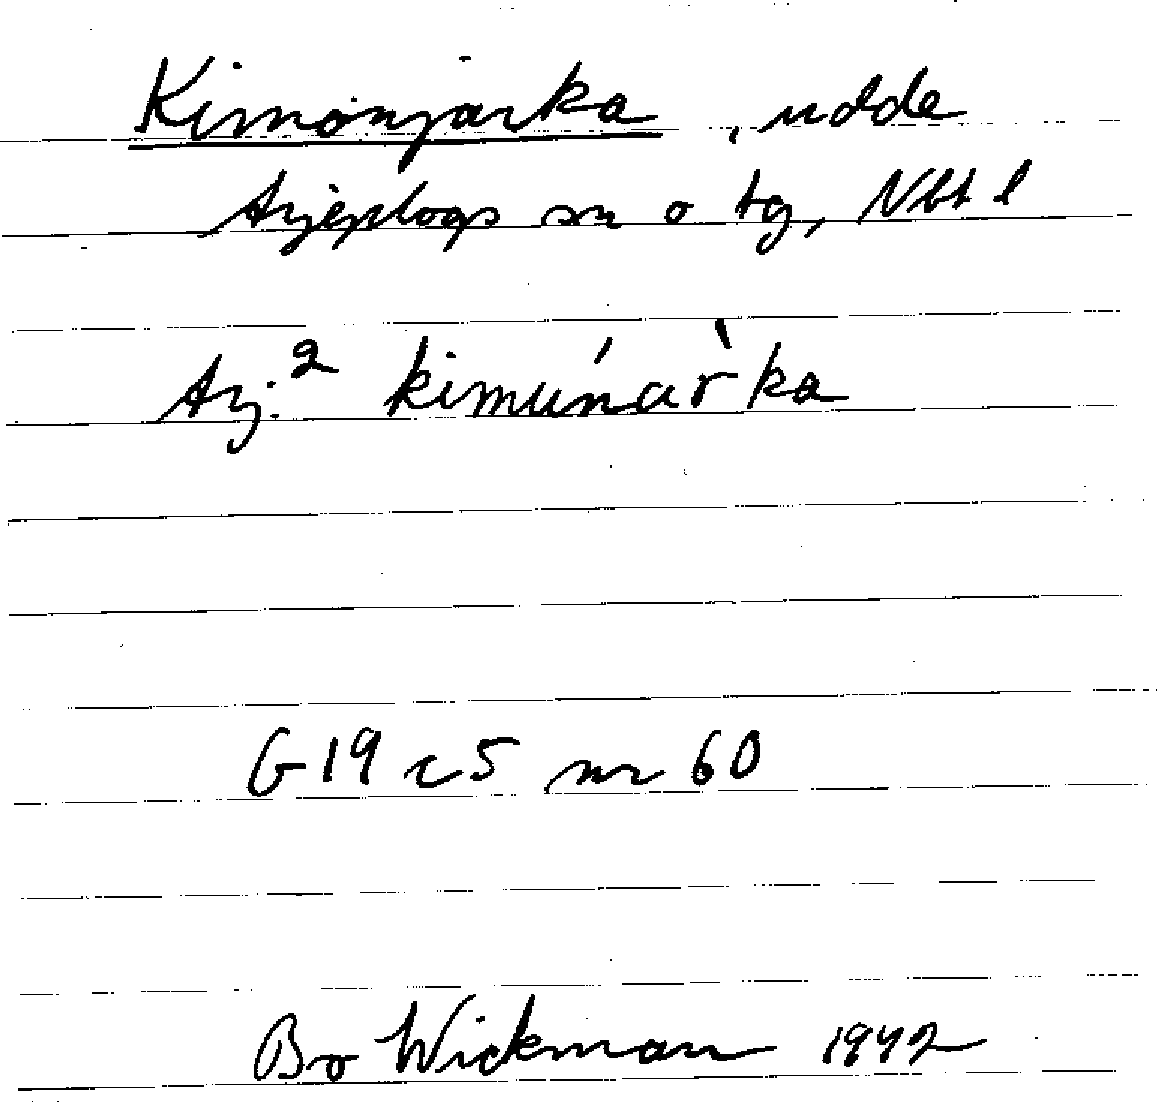 Kimonjarka, udde
Arjeplogs sn o tg, Nbt l
Arj.² kimúnàr̀ka
G19 c5 nr 60
Bo Wickman 1942